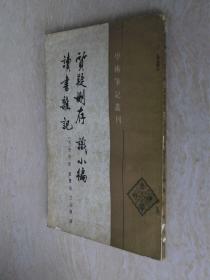 學術筆記叢刊
質疑刪存 識小編
讀書雜記